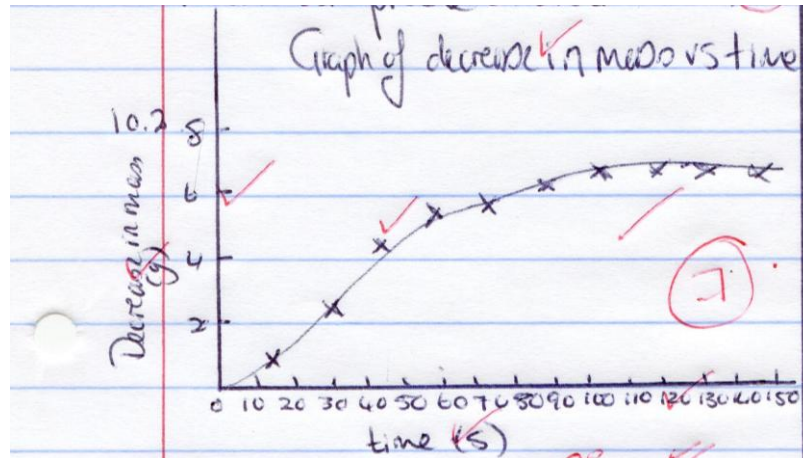 Graph of decrease in mass vs time
10.2
8
6
4
2
Decrease in mass
(g)
7
0 10 20 30 40 50 60 70 80 90 100 110 120 130 140 150
time (s)